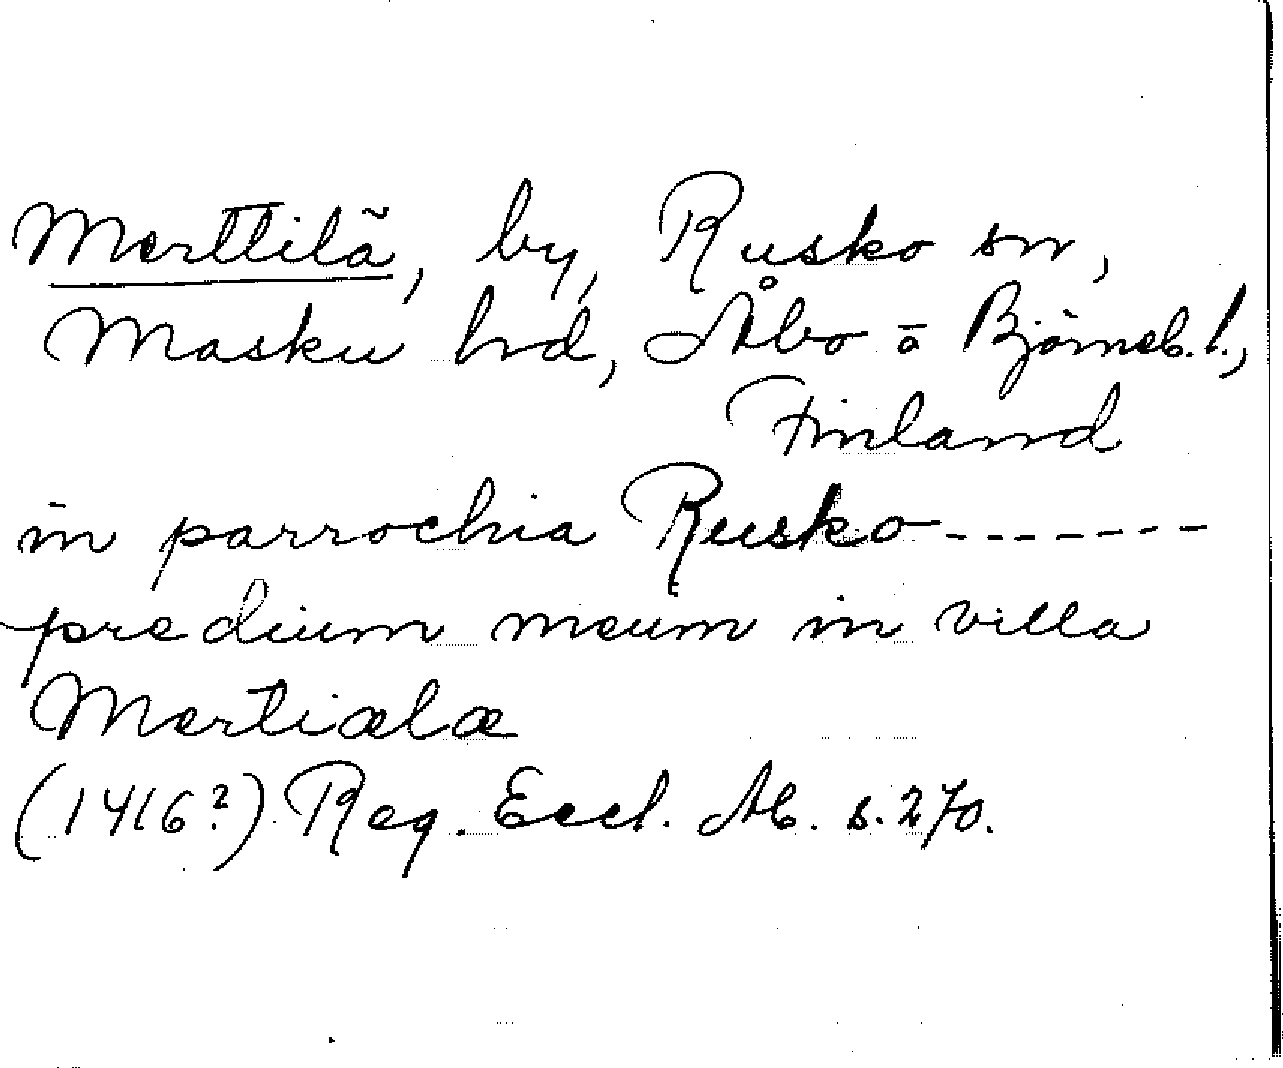 Merttilä, by, Rusko sn,
Masku hd, Åbo o Björneb. l.,
Finland
in parrochia Rusko -------
predium meum in villa
Mertiælæ
(1416?) Reg. Eccl. Ab. s. 270.